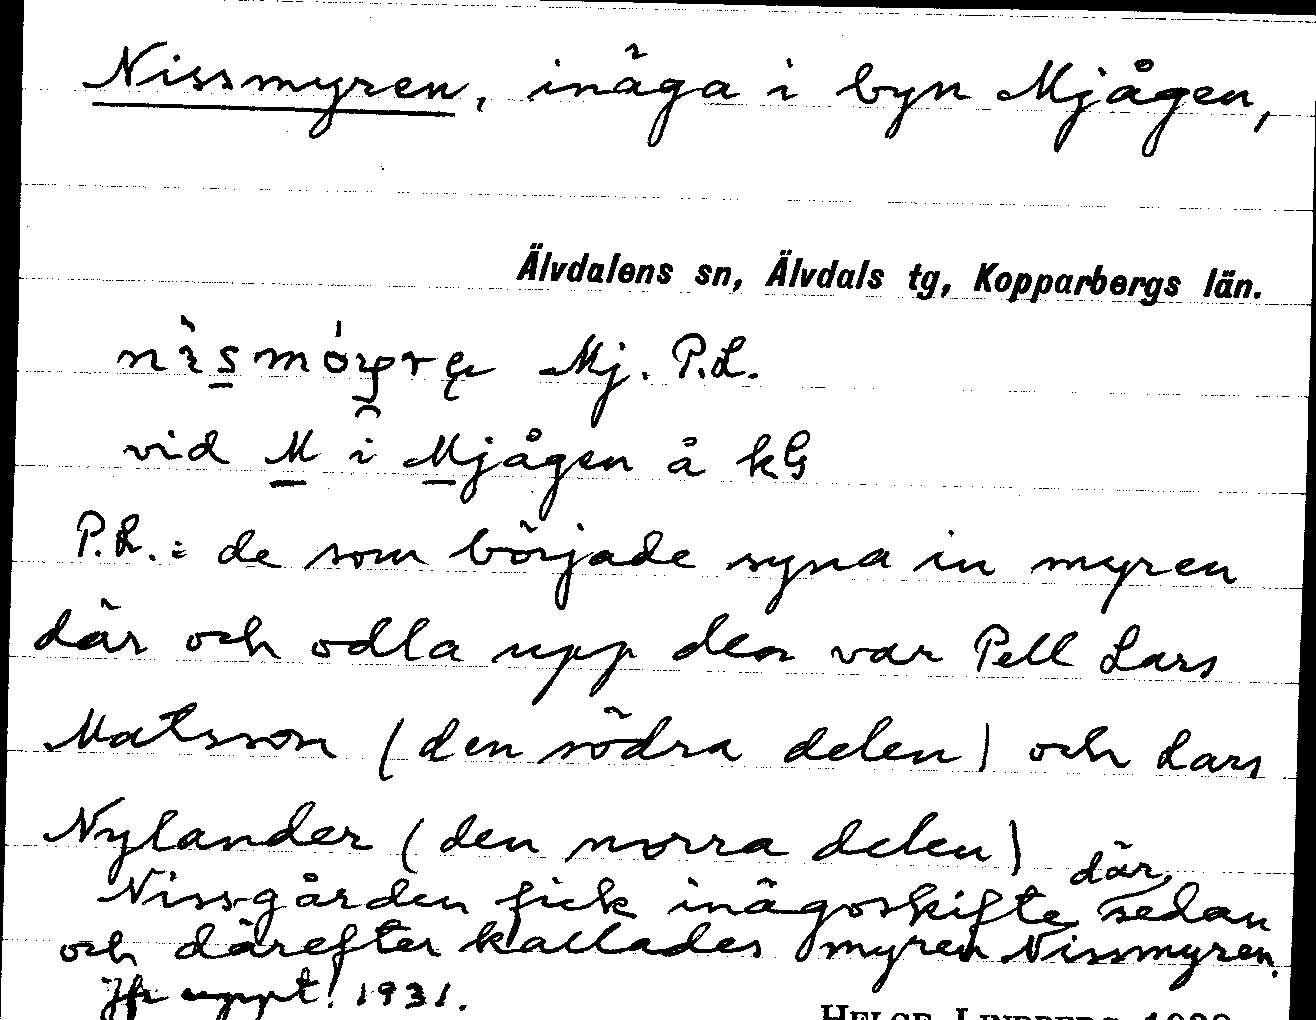 Nissmyren, inäga i byn Mjågen,
Älvdalens sn, Älvdals tg, Kopparbergs län.
Mj. P.L.
vid M i Mjågen å kG
P.L.: de som började syna in myren
där och odla upp den var Pell Lars
Matsson (den södra delen) och Lars
Nylander (den norra delen)
Nissgården fick inägoskifte där, sedan
och därefter kallades myren Nissmyren.
Jfr uppt. 1931.
HELGE LINDBERG